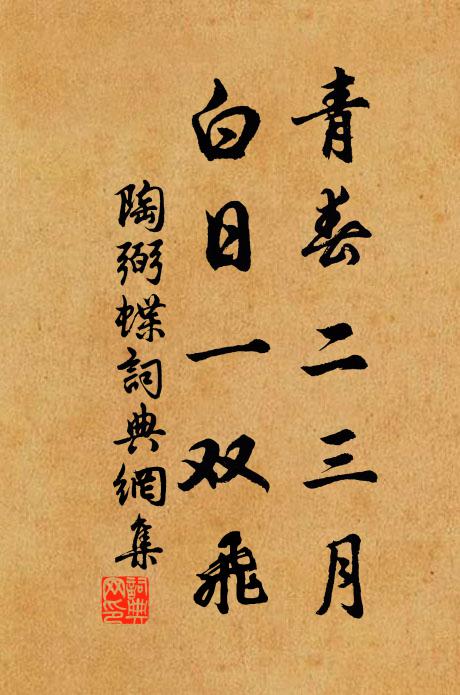 青春二三月
白日一双飛
陶弼蝶詞典網集
詞典
网印